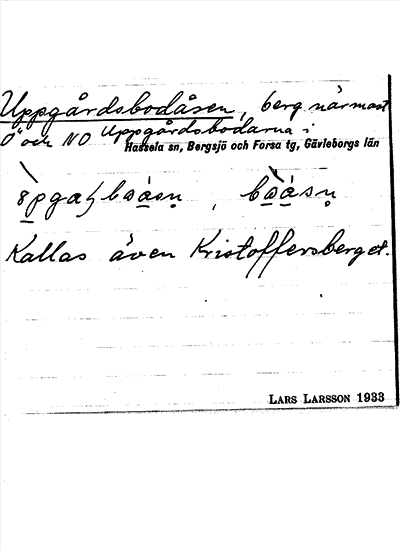 Uppgårdsbodåsen, berg närmast
Ö och NO Uppgårdsbodarna i
Hassela sn, Bergsjö och Forsa tg, Gävleborgs län
Kallas även Kristoffersberget.
LARS LARSSON 1933